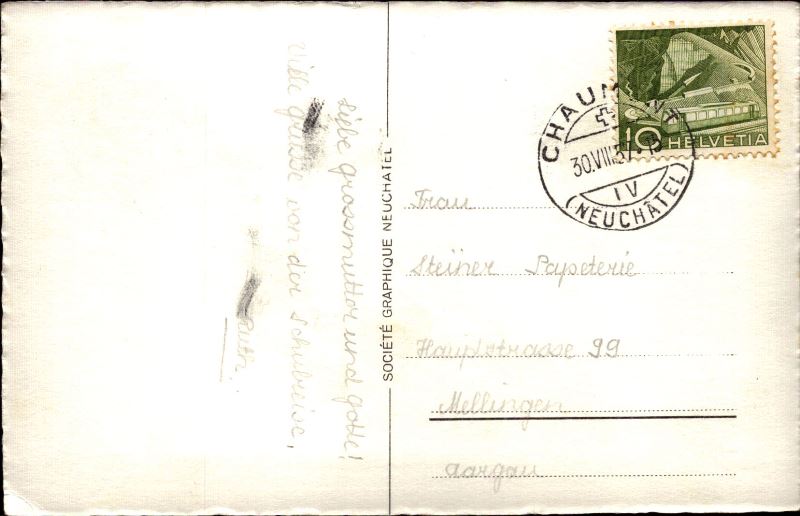 Liebe grossmutter und gotte!
Viele grüsse von der Schulreise,
Ruth.
SOCIÉTÉ GRAPHIQUE NEUCHATEL
CHAUMONT
30.VIII.57
IV
(NEUCHÂTEL)
10 HELVETIA
Frau
Steiner Papeterie
Hauptstrasse 99
Mellingen
Aargau